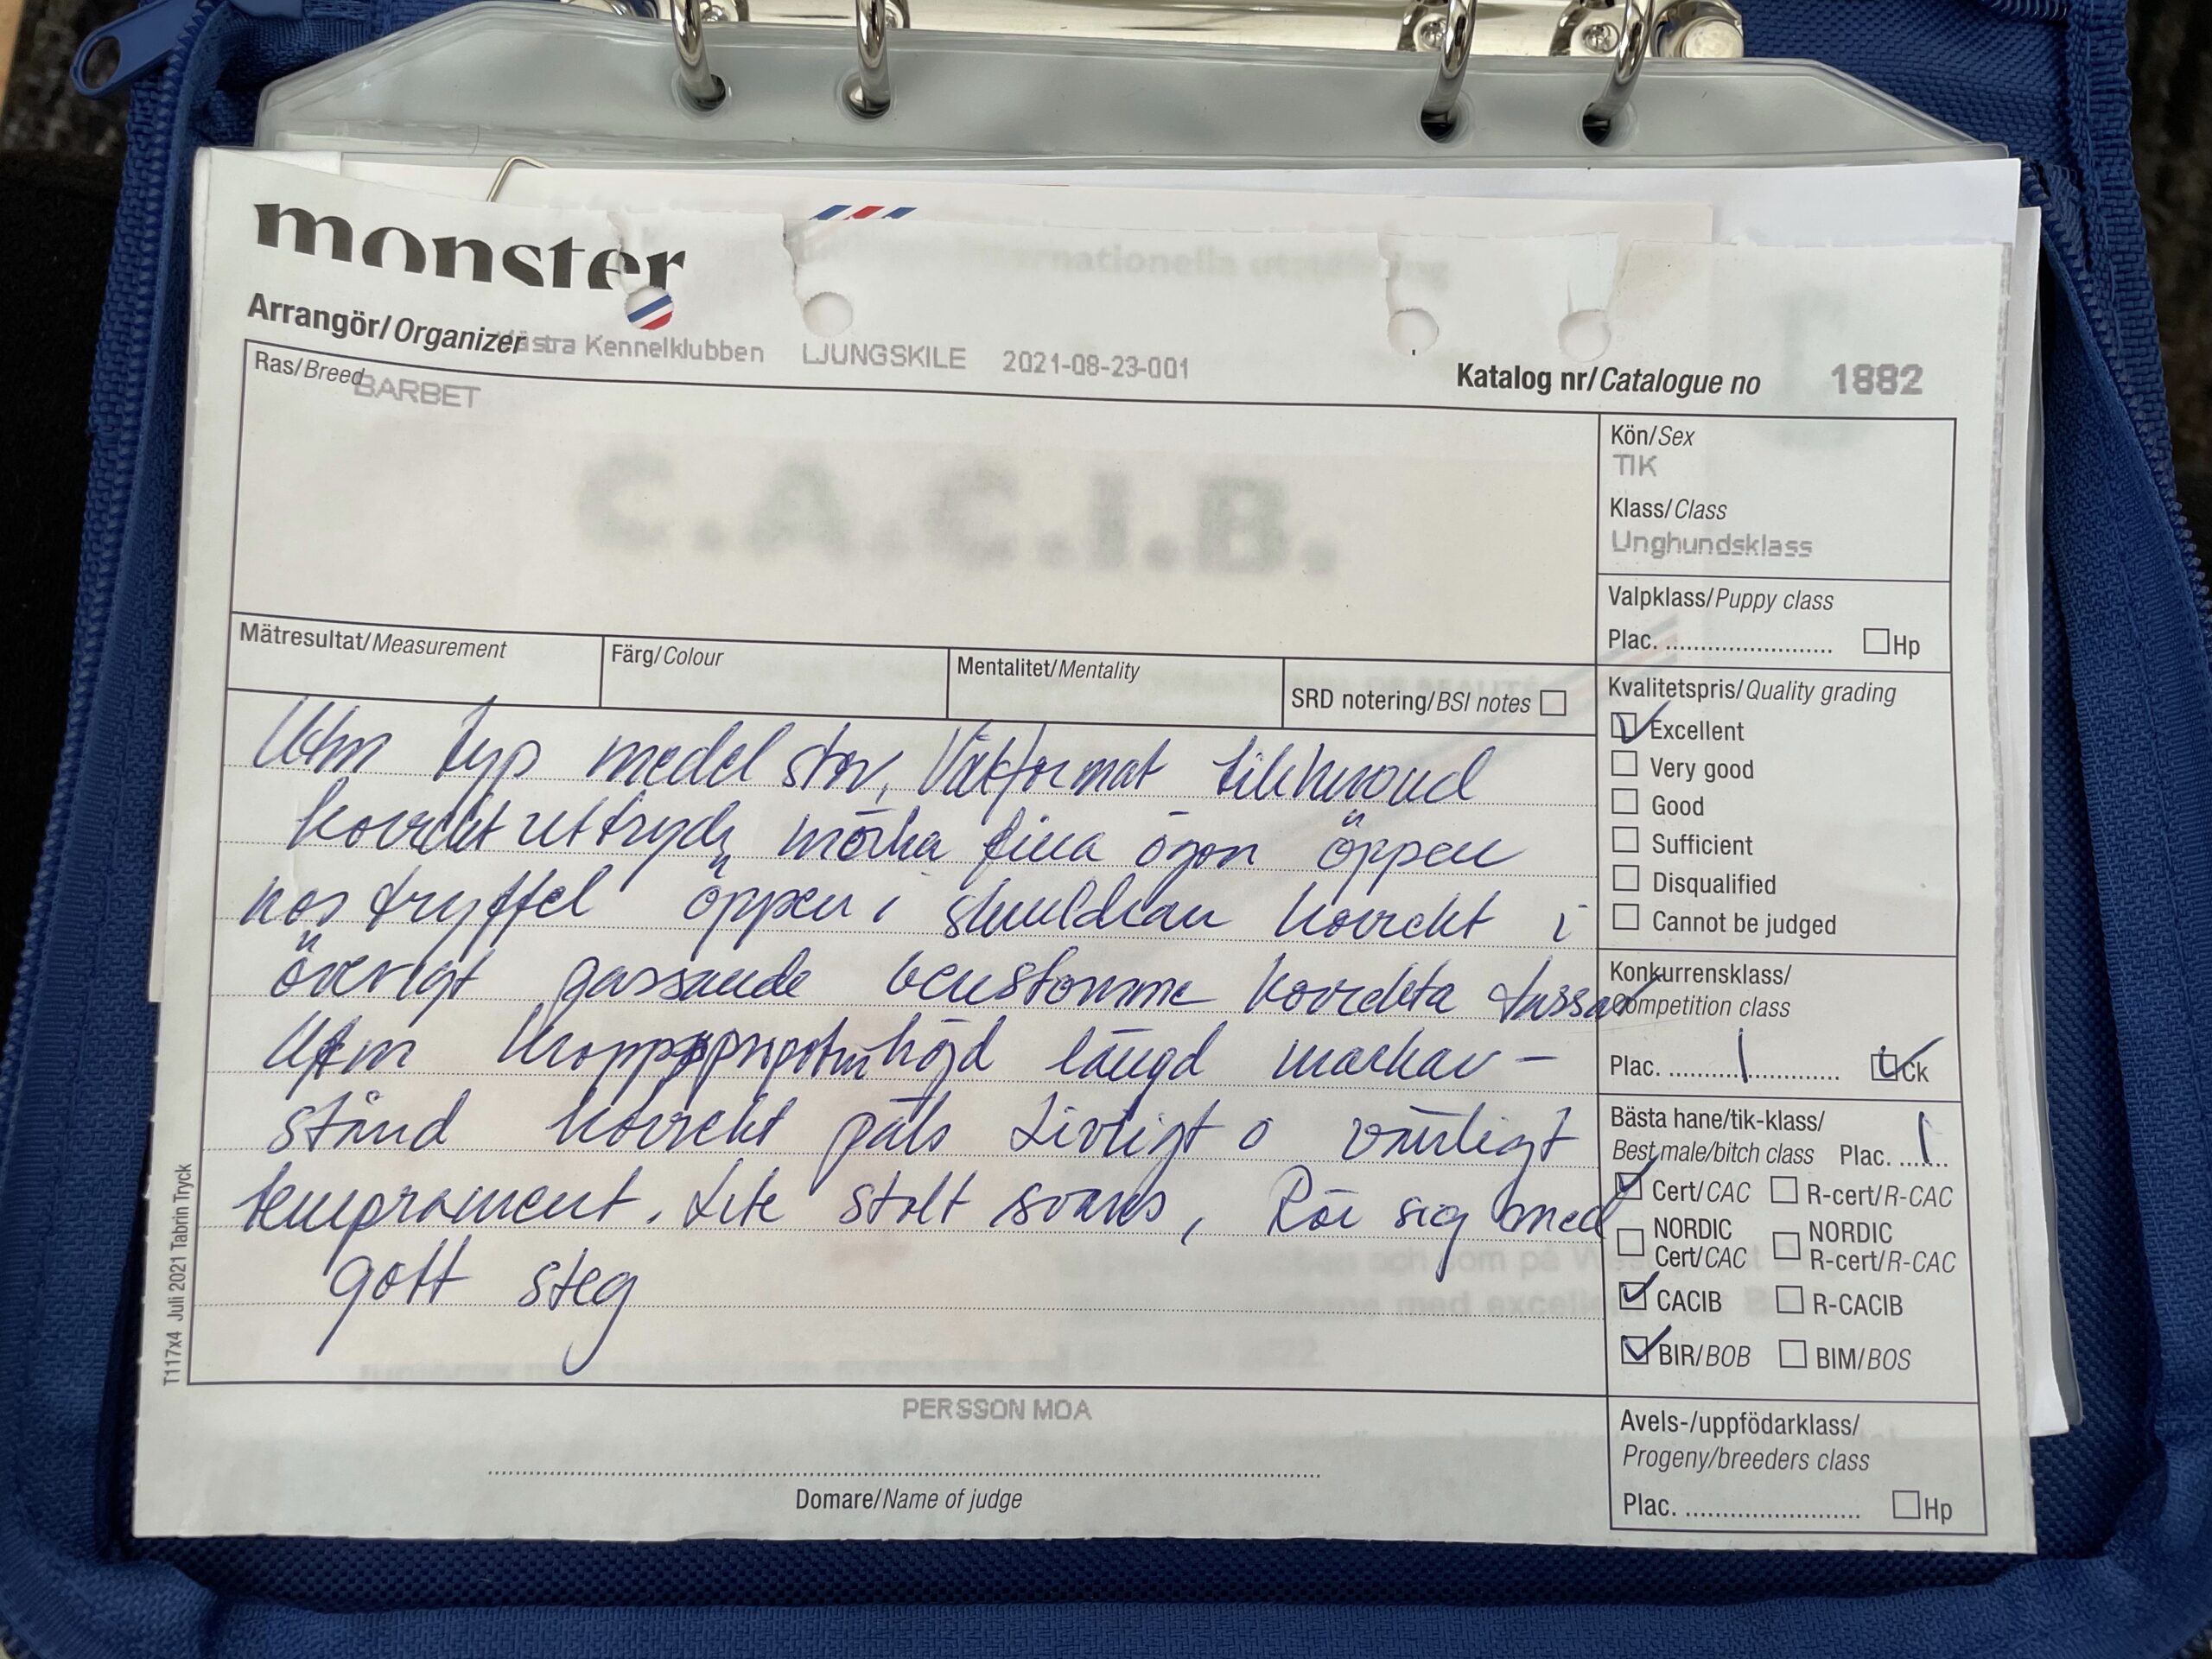 monster
Arrangör/Organizer Västra Kennelklubben LJUNGSKILE 2021-08-23-001
Katalog nr/Catalogue no 1882
Ras/Breed BARBET
C.A.C.I.B.
Kön/Sex
TIK
Klass/Class
Unghundsklass
Valpklass/Puppy class
Plac. ☐ Hp
Mätresultat/Measurement
Färg/Colour
Mentalitet/Mentality
SRD notering/BSI notes ☐
Utm typ medel stor, Växformat tikhuvud
korrekt uttryck mörka fina ögon öppen
nos tryffel öppen i skuldran korrekt i
övrigt passande benstomme korrekta tassar
Utm höjd längd markav-
stånd korrekt päls Livligt o vänligt
temprament. Lite stolt svans, Rör sig med
gott steg
Kvalitetspris/Quality grading
☑ Excellent
☐ Very good
☐ Good
☐ Sufficient
☐ Disqualified
☐ Cannot be judged
Konkurrensklass/
Competition class
Plac. 1 ☑ Ck
Bästa hane/tik-klass/
Best male/bitch class Plac. 1
☑ Cert/CAC ☐ R-cert/R-CAC
☐ NORDIC Cert/CAC ☐ NORDIC R-cert/R-CAC
☑ CACIB ☐ R-CACIB
☑ BIR/BOB ☐ BIM/BOS
Avels-/uppfödarklass/
Progeny/breeders class
Plac. ☐ Hp
PERSSON MOA
Domare/Name of judge
T117x4 Juli 2021 Tabrin Tryck